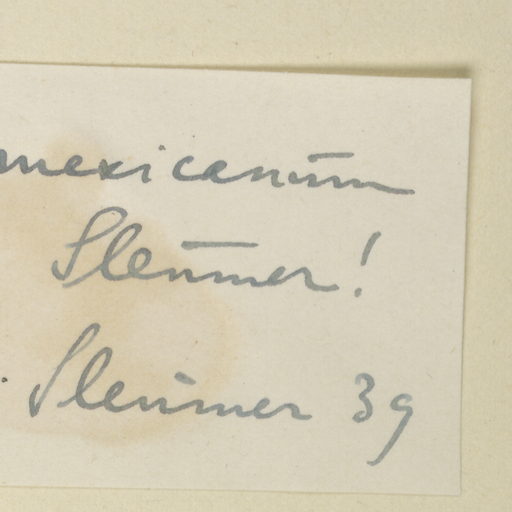 mexicanum
Sleumer!
. Sleumer 39